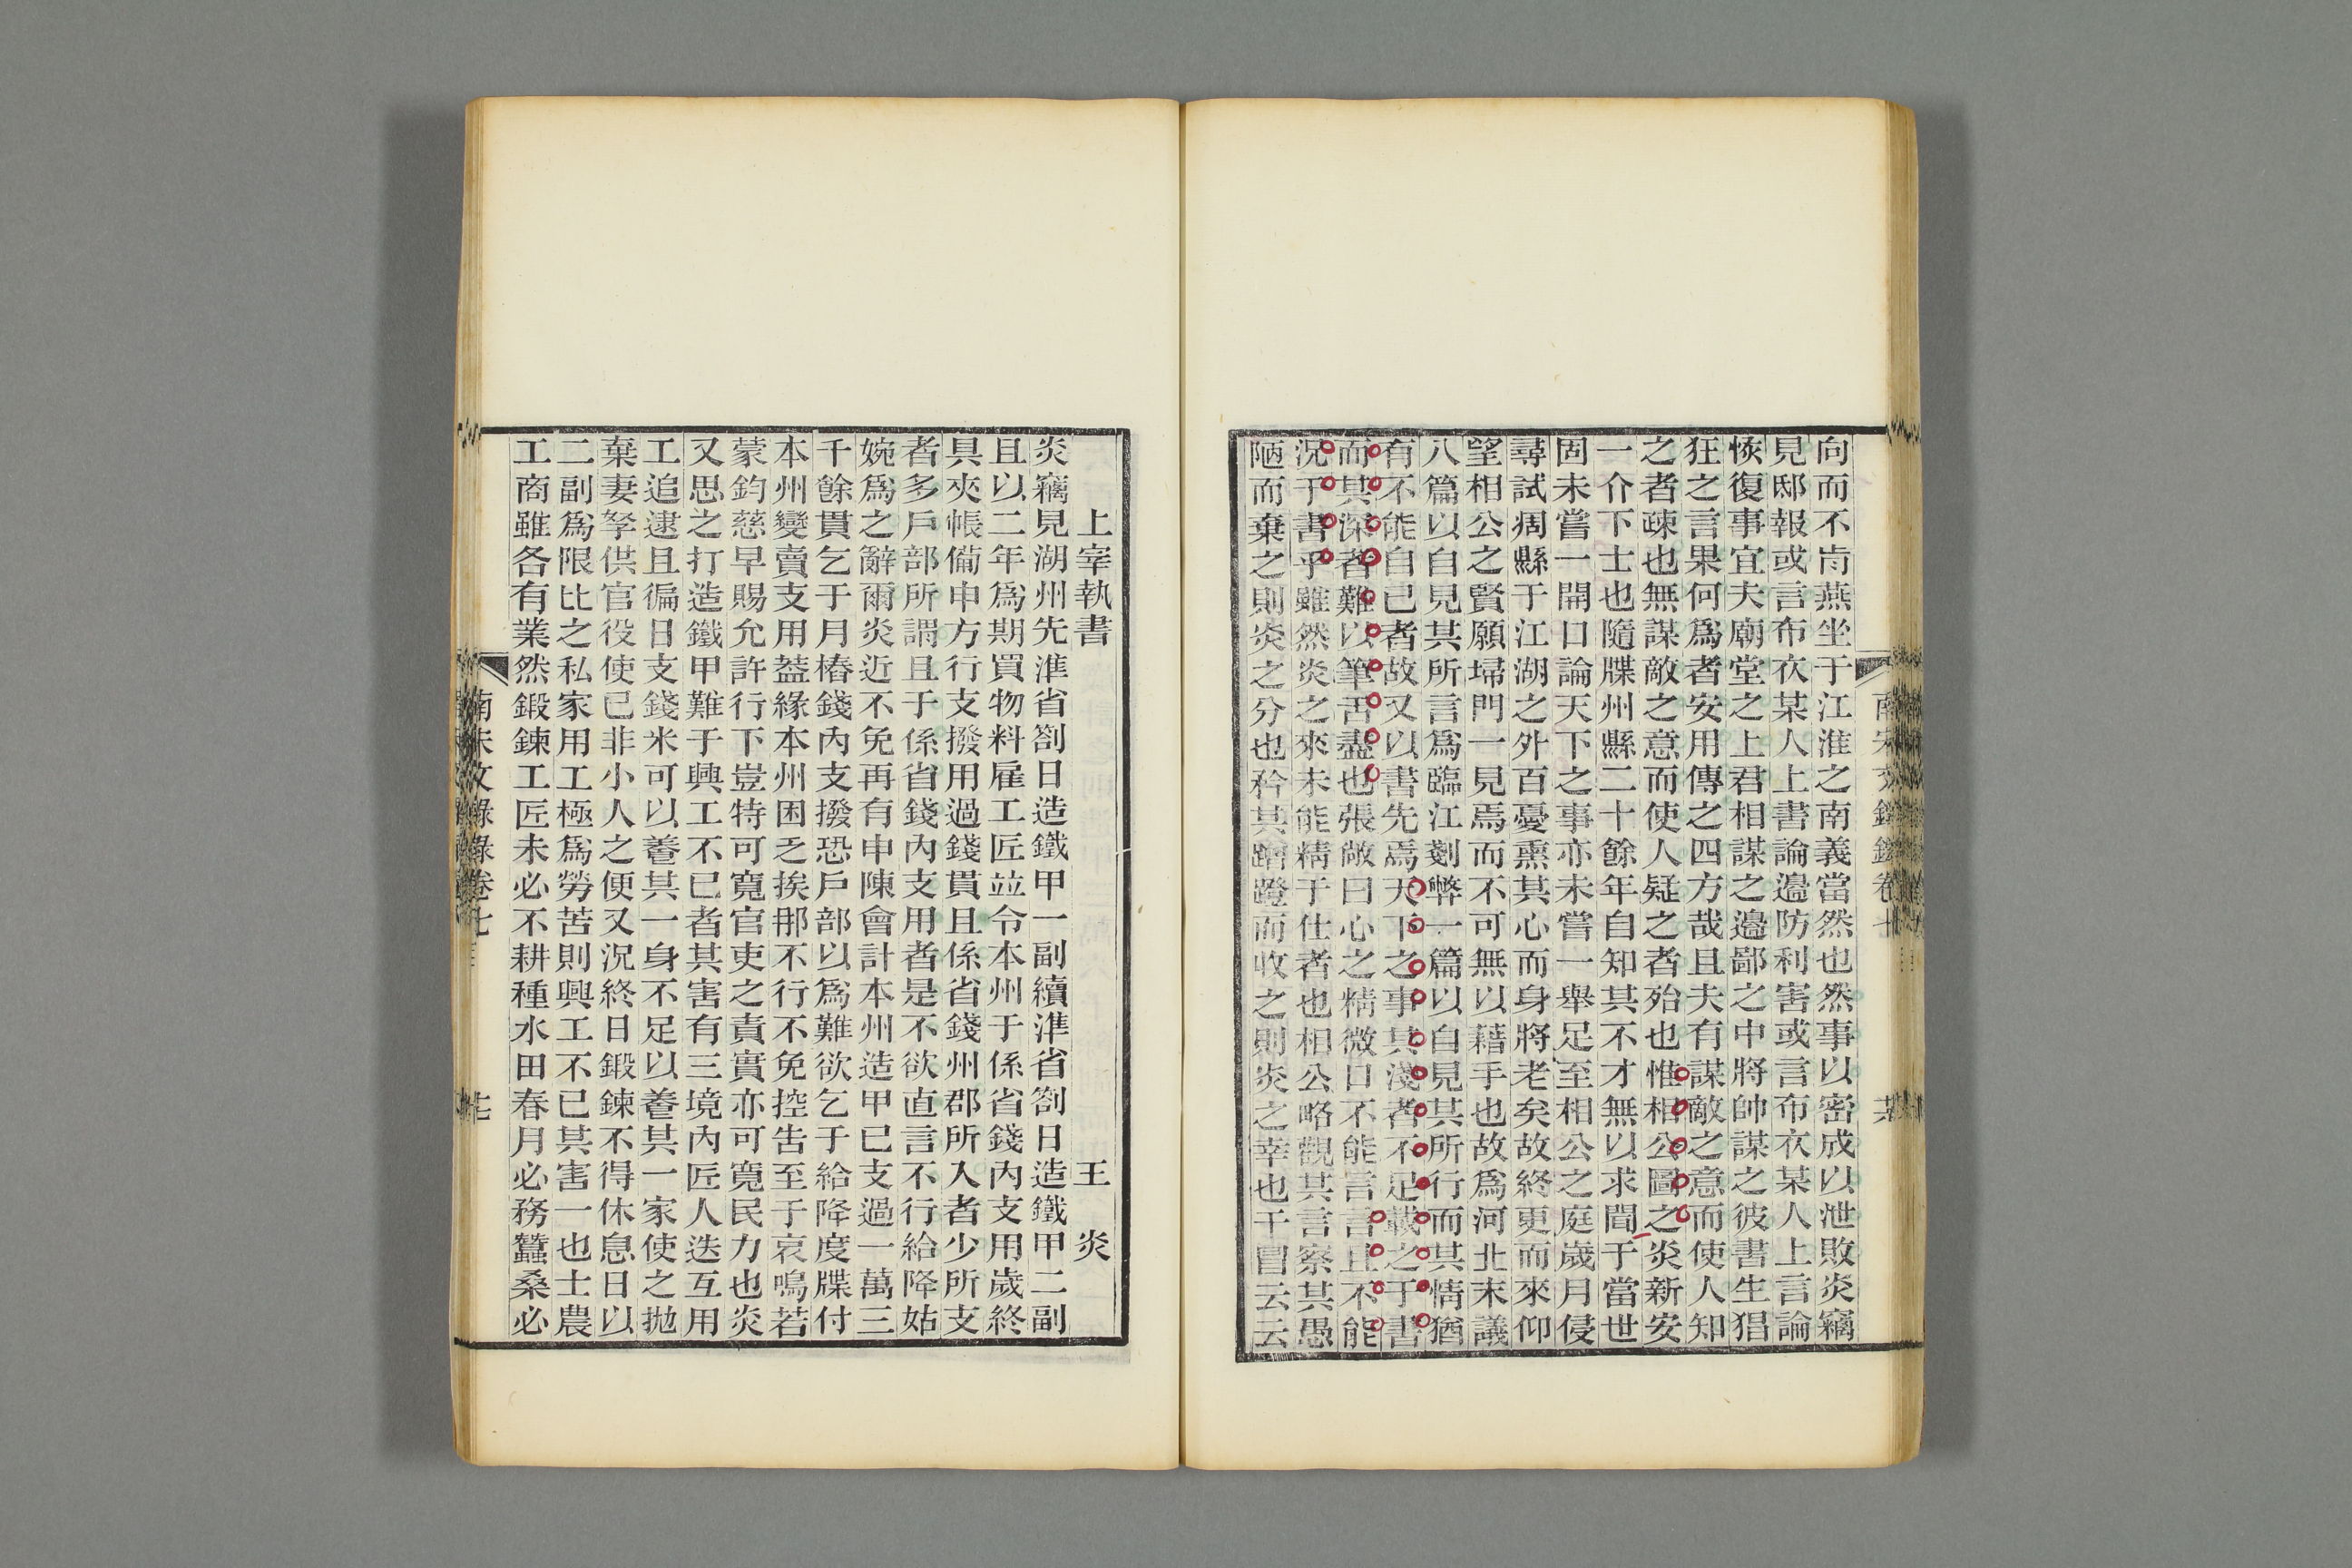 向而不肯燕坐于江淮之南義當然也然事以密成以泄敗炎竊
見邸報或言布衣某人上書論邊防利害或言布衣某人上言論
恢復事宜夫廟堂之上君相謀之邊鄙之中將帥謀之彼書生猖
狂之言果何爲者安用傳之四方哉且夫有謀敵之意而使人知
之者疎也無謀敵之意而使人疑之者殆也惟相公圖之炎新安
一介下士也隨牒州縣二十餘年自知其不才無以求聞于當世
固未嘗一開口論天下之事亦未嘗一舉足至相公之庭歲月侵
尋試凋縣于江湖之外百憂熏其心而身將老矣故終更而來仰
望相公之賢願埽門一見焉而不可無以藉手也故爲河北末議
八篇以自見其所言爲臨江剗弊一篇以自見其所行而其情猶
有不能自已者故又以書先焉天下之事其淺者不足載之于書
而其深者難以筆舌盡也張敞曰心之精微口不能言言且不能
況于書乎雖然炎之來未能精于仕者也相公略觀其言察其愚
陋而棄之則炎之分也矜其蹭蹬而收之則炎之幸也干冒云云
上宰執書 王炎
炎竊見湖州先準省劄日造鐵甲一副續準省劄日造鐵甲二副
且以二年爲期買物料雇工匠並令本州于係省錢內支用歲終
具夾帳備申方行支撥用過錢貫且係省錢州郡所入者少所支
者多戶部所謂且于係省錢內支用者是不欲直言不行給降姑
婉爲之辭爾炎近不免再有申陳會計本州造甲已支過一萬三
千餘貫乞于月樁錢內支撥恐戶部以爲難欲乞于給降度牒付
本州變賣支用葢緣本州困乏挨那不行不免控告至于哀鳴若
蒙鈞慈早賜允許行下豈特可寬官吏之責實亦可寬民力也炎
又思之打造鐵甲難于興工不已者其害有三境內匠人迭互用
工追逮且徧日支錢米可以養其一身不足以養其一家使之抛
棄妻孥供官役使已非小人之便又況終日鍛鍊不得休息日以
二副爲限比之私家用工極爲勞苦則興工不已其害一也士農
工商雖各有業然鍛鍊工匠未必不耕種水田春月必務蠶桑必
南宋文錄錄卷七